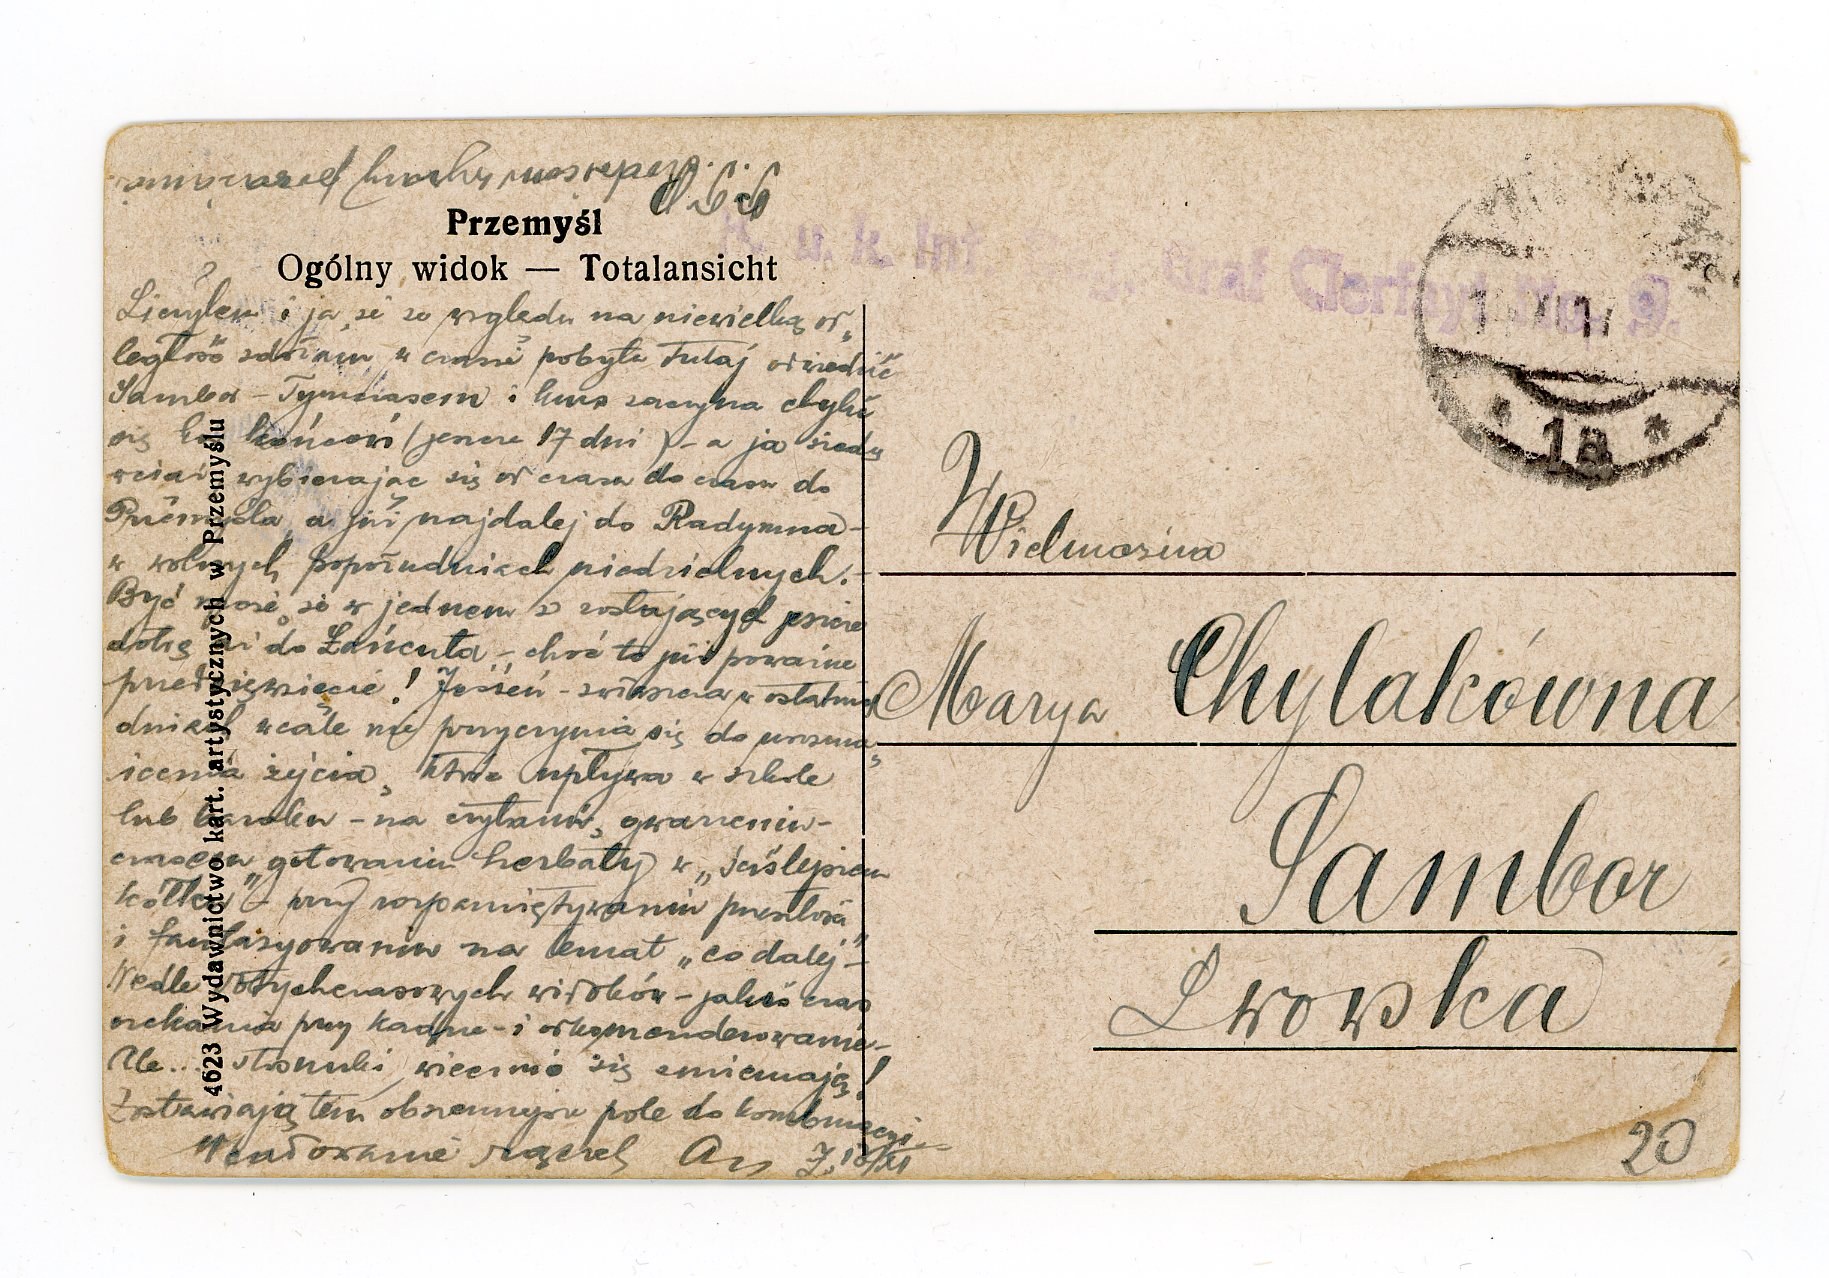 Przemyśl
Ogólny widok — Totalansicht
4623 Wydawnictwo kart. artystycznych w Przemyślu
K. u. k. Inf Graf Clerfayt No. 9.
18
Liczyłem i ja, że ze względu na niewielką od„
ległość zdołam w czasie pobytu tutaj odwiedzić
Sambor - Tymczasem i kurs zaczyna chylić
się ku końcowi (jeszcze 17 dni) - a ja siedzę
wciąż wybierając się od czasu do czasu do
Przemyśla, a już najdalej do Radymna -
w wolnych popołudniach niedzielnych. -
Być może, że w jednem z zostających jeszcze
do Łańcuta - choć to już poważne
przedsięwzięcie! Jesień - zwłaszcza w ostatnich
dniach wcale nie przyczynia się do urozma„
icenia życia, które upływa w szkole
lub baraku - na czytaniu, gwarzeniu -
gotowaniu herbaty w „
kółku" - przy rozpamiętywaniu przeszłości
i fantazyowaniu na temat „co dalej" -
Wedle dotychczasowych widoków - jakiś czas
czekania przy kadrze - i odkomenderowanie -
Ale... stosunki wiecznie się zmieniają!
Zostawiają tem obszerniejsze pole do kombinacyi -
rączek
Wielmożna
Marya Chylakówna
Sambor
Lwowska
20